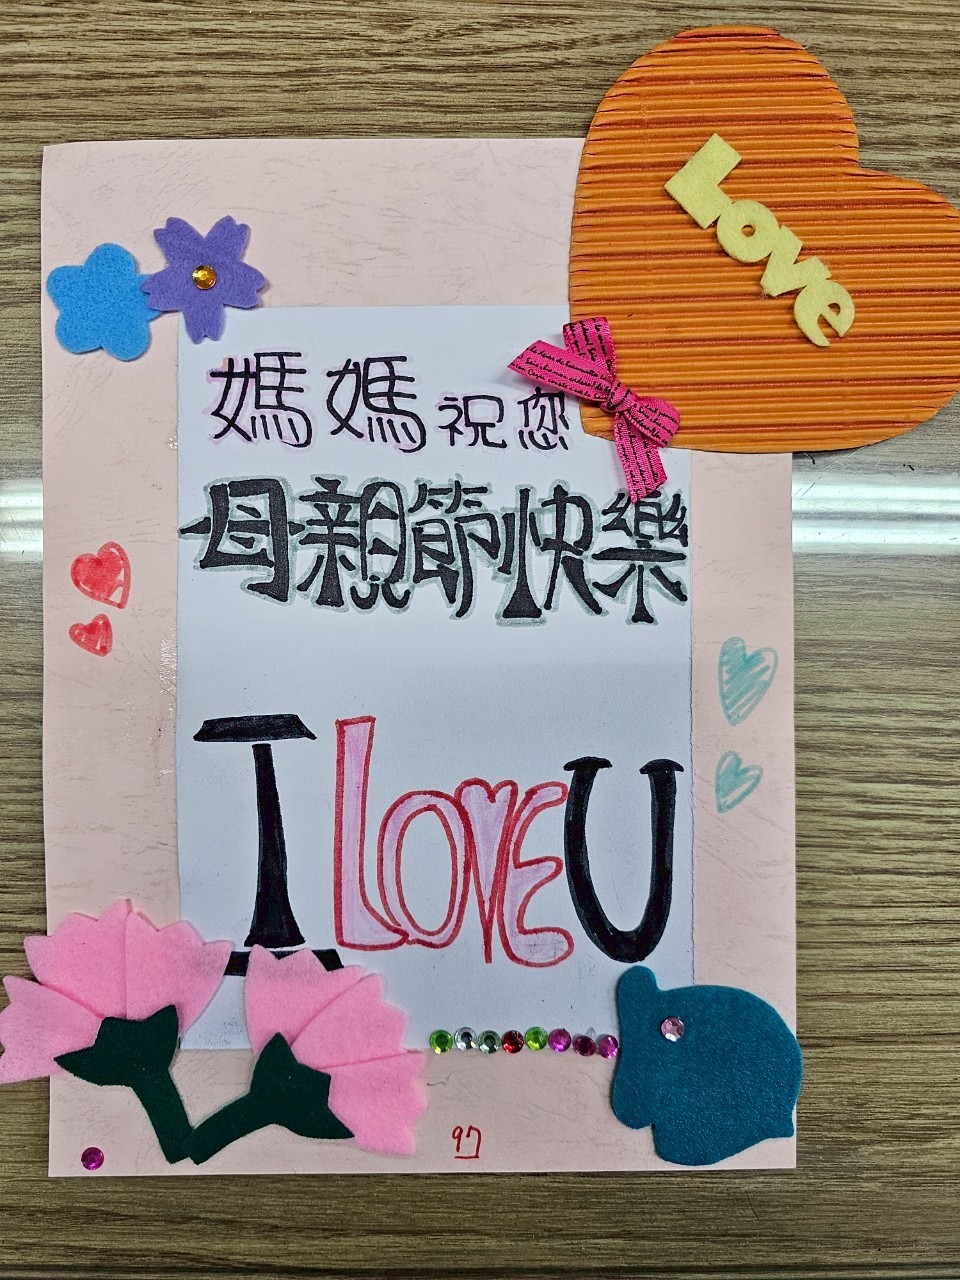 Love
媽媽祝您
母親節快樂
I LOVE U
97